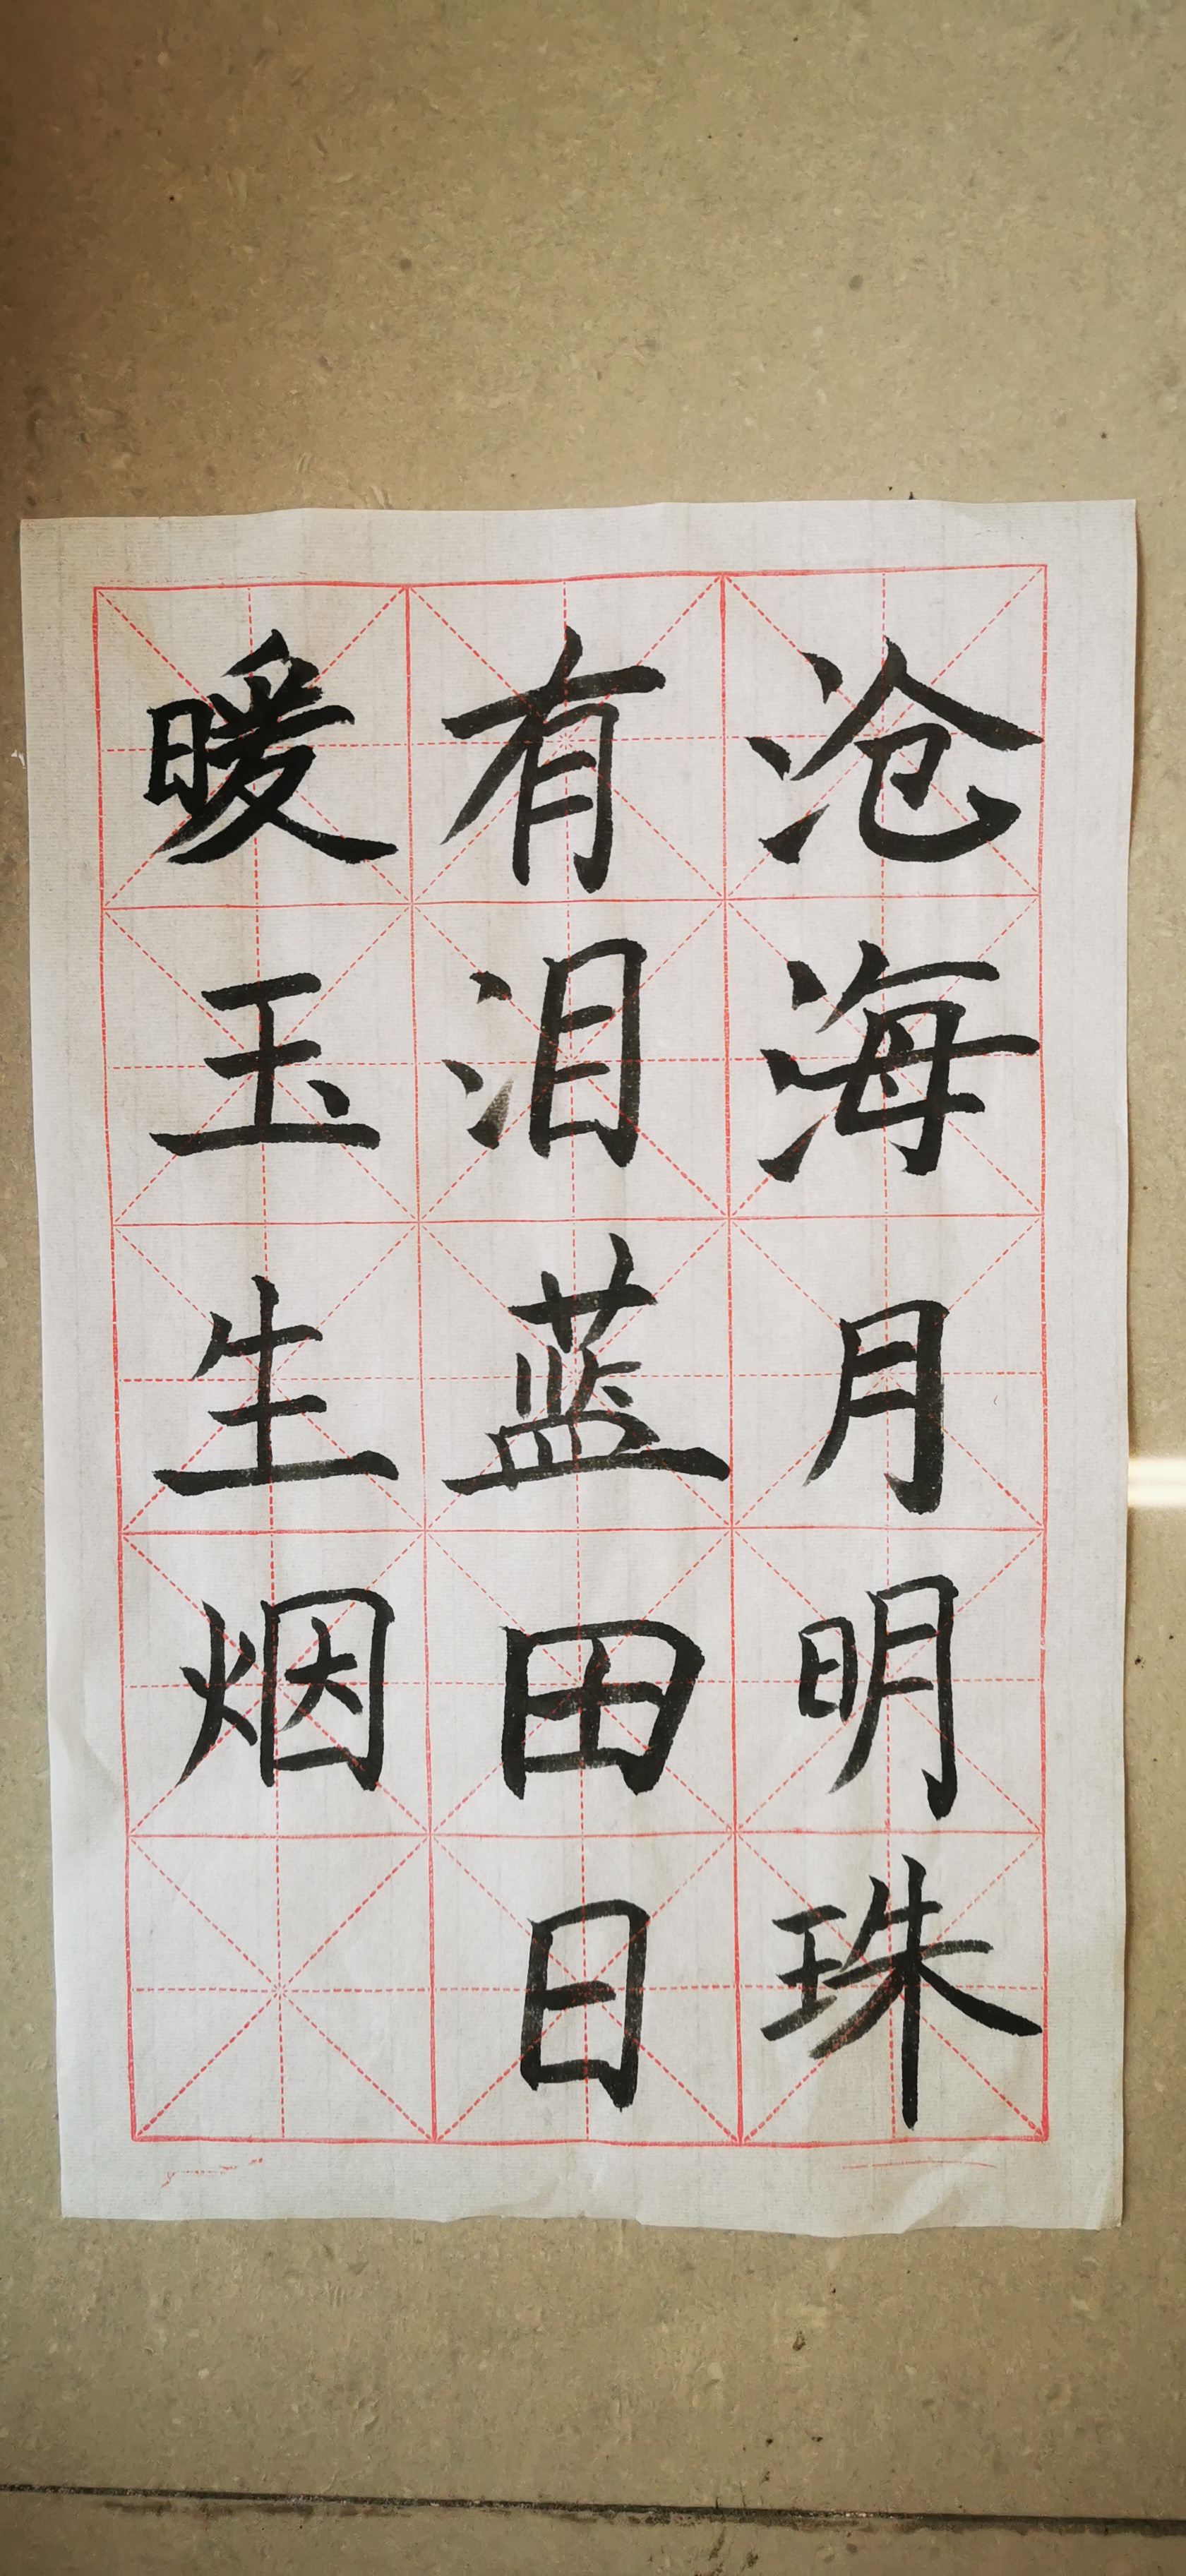 沧海月明珠
有泪蓝田日
暖玉生烟